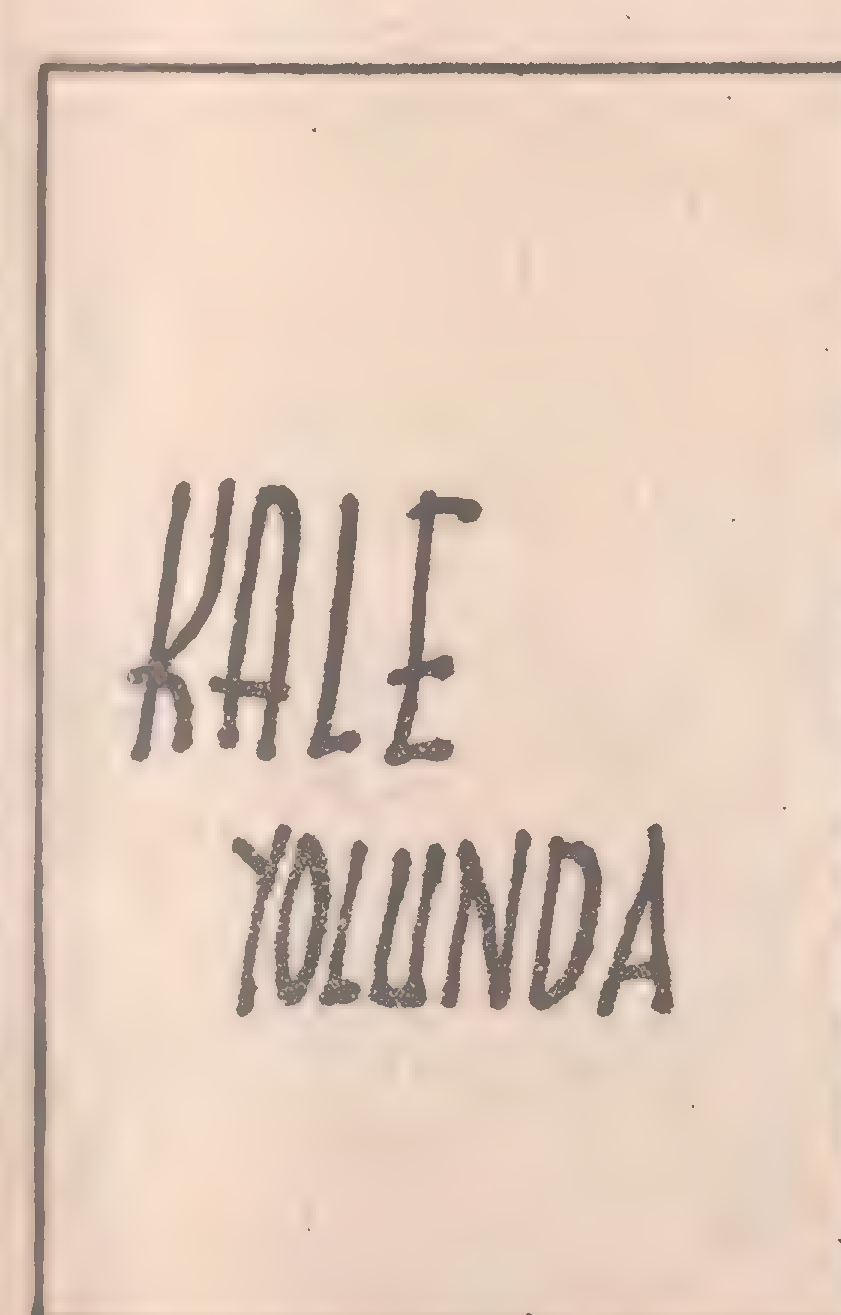 KALE
YOLUNDA